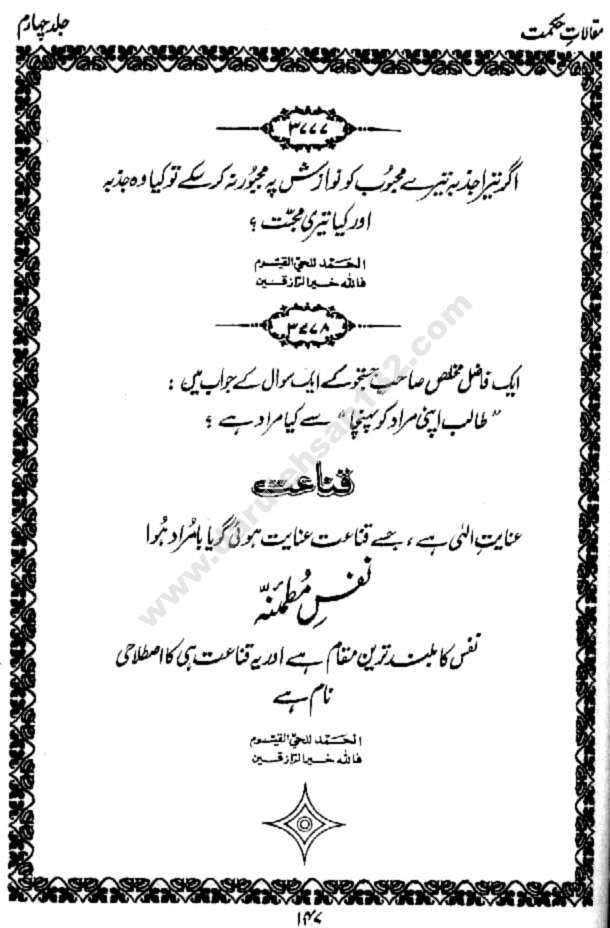 مقالاتِ حکمت
جلد چہارم
۳۷۷۷
اگر تیرا جذبہ تیرے محبوب کو نوازش پہ مجبُور نہ کر سکے تو کیا وہ جذبہ
اور کیا تیری محبّت ؟
الحَمد للحیّ القیّوم
فاللہ خیر الرّازقین
۳۷۷۸
ایک فاضل مخلص صاحبِ جستجو کے ایک سوال کے جواب میں :
"طالب اپنی مراد کو پہنچا" سے کیا مراد ہے ؟
قناعت
عنایتِ الٰہی ہے ، جسے قناعت عنایت ہوئی گویا بامُراد ہُوا
نفسِ مُطمئنّہ
نفس کا بلند ترین مقام ہے اور یہ قناعت ہی کا اصطلاحی
نام ہے
الحَمد للحیّ القیّوم
فاللہ خیر الرّازقین
۱۴۷
www.darulehsan112.com